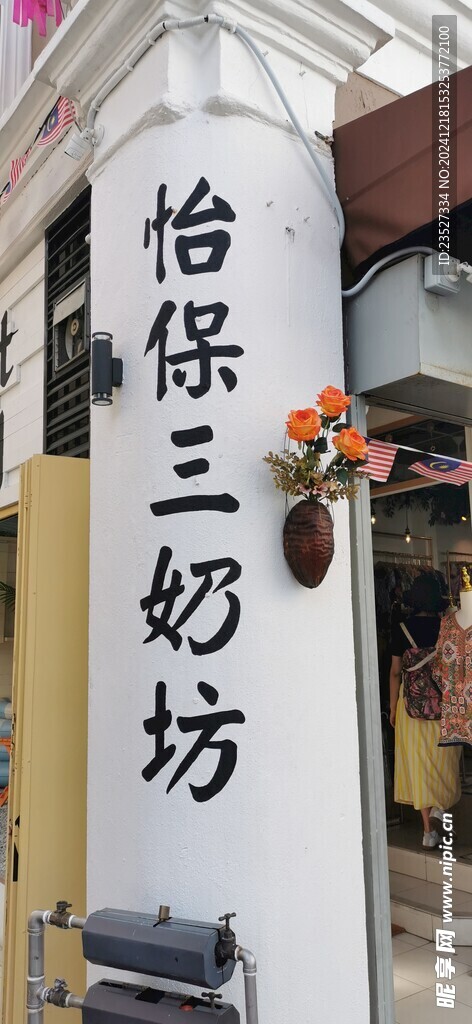 怡保三奶坊
t
ID:23527334 NO:20241218153253772100
昵享网 www.nipic.cn